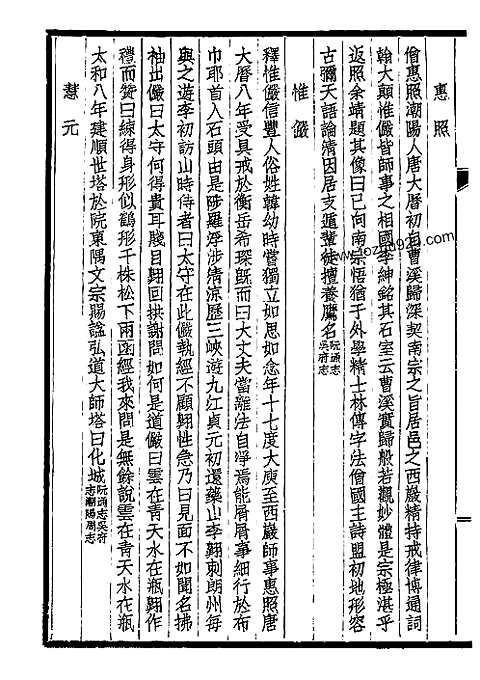 惠照
僧惠照潮陽人唐大曆初自曹溪歸深契南宗之旨居邑之西巖精持戒律博通詞
翰大顛惟儼皆師事之相國李紳銘其石室云曹溪實歸般若觀妙體是宗極湛乎
返照余靖題其像曰已向南宗悟猶于外學精士林傳字法僧國主詩盟初地形容
古彌天語論清因居支遁輩徒擅養鷹名阮通志吳府志
惟儼
釋惟儼信豐人俗姓韓幼時嘗獨立如思如念年十七度大庾至西巖師事惠照唐
大曆八年受具戒於衡岳希琛旣而曰大丈夫當離法自淨焉能屑屑事細行於布
巾耶首入石頭由是陟羅浮涉清涼歷三峽遊九江貞元初還藥山李翺刺朗州每
與之遊李初訪山時侍者曰太守在此儼執經不顧翺性急乃曰見面不如聞名拂
袖出儼曰太守何得貴耳賤目翺回拱謝問如何是道儼曰雲在青天水在瓶翺作
禮而贊曰練得身形似鶴形千株松下兩函經我來問是無餘說雲在青天水在瓶
太和八年建順世塔於院東隅文宗賜諡弘道大師塔曰化城阮通志吳府志潮陽周志
慧元